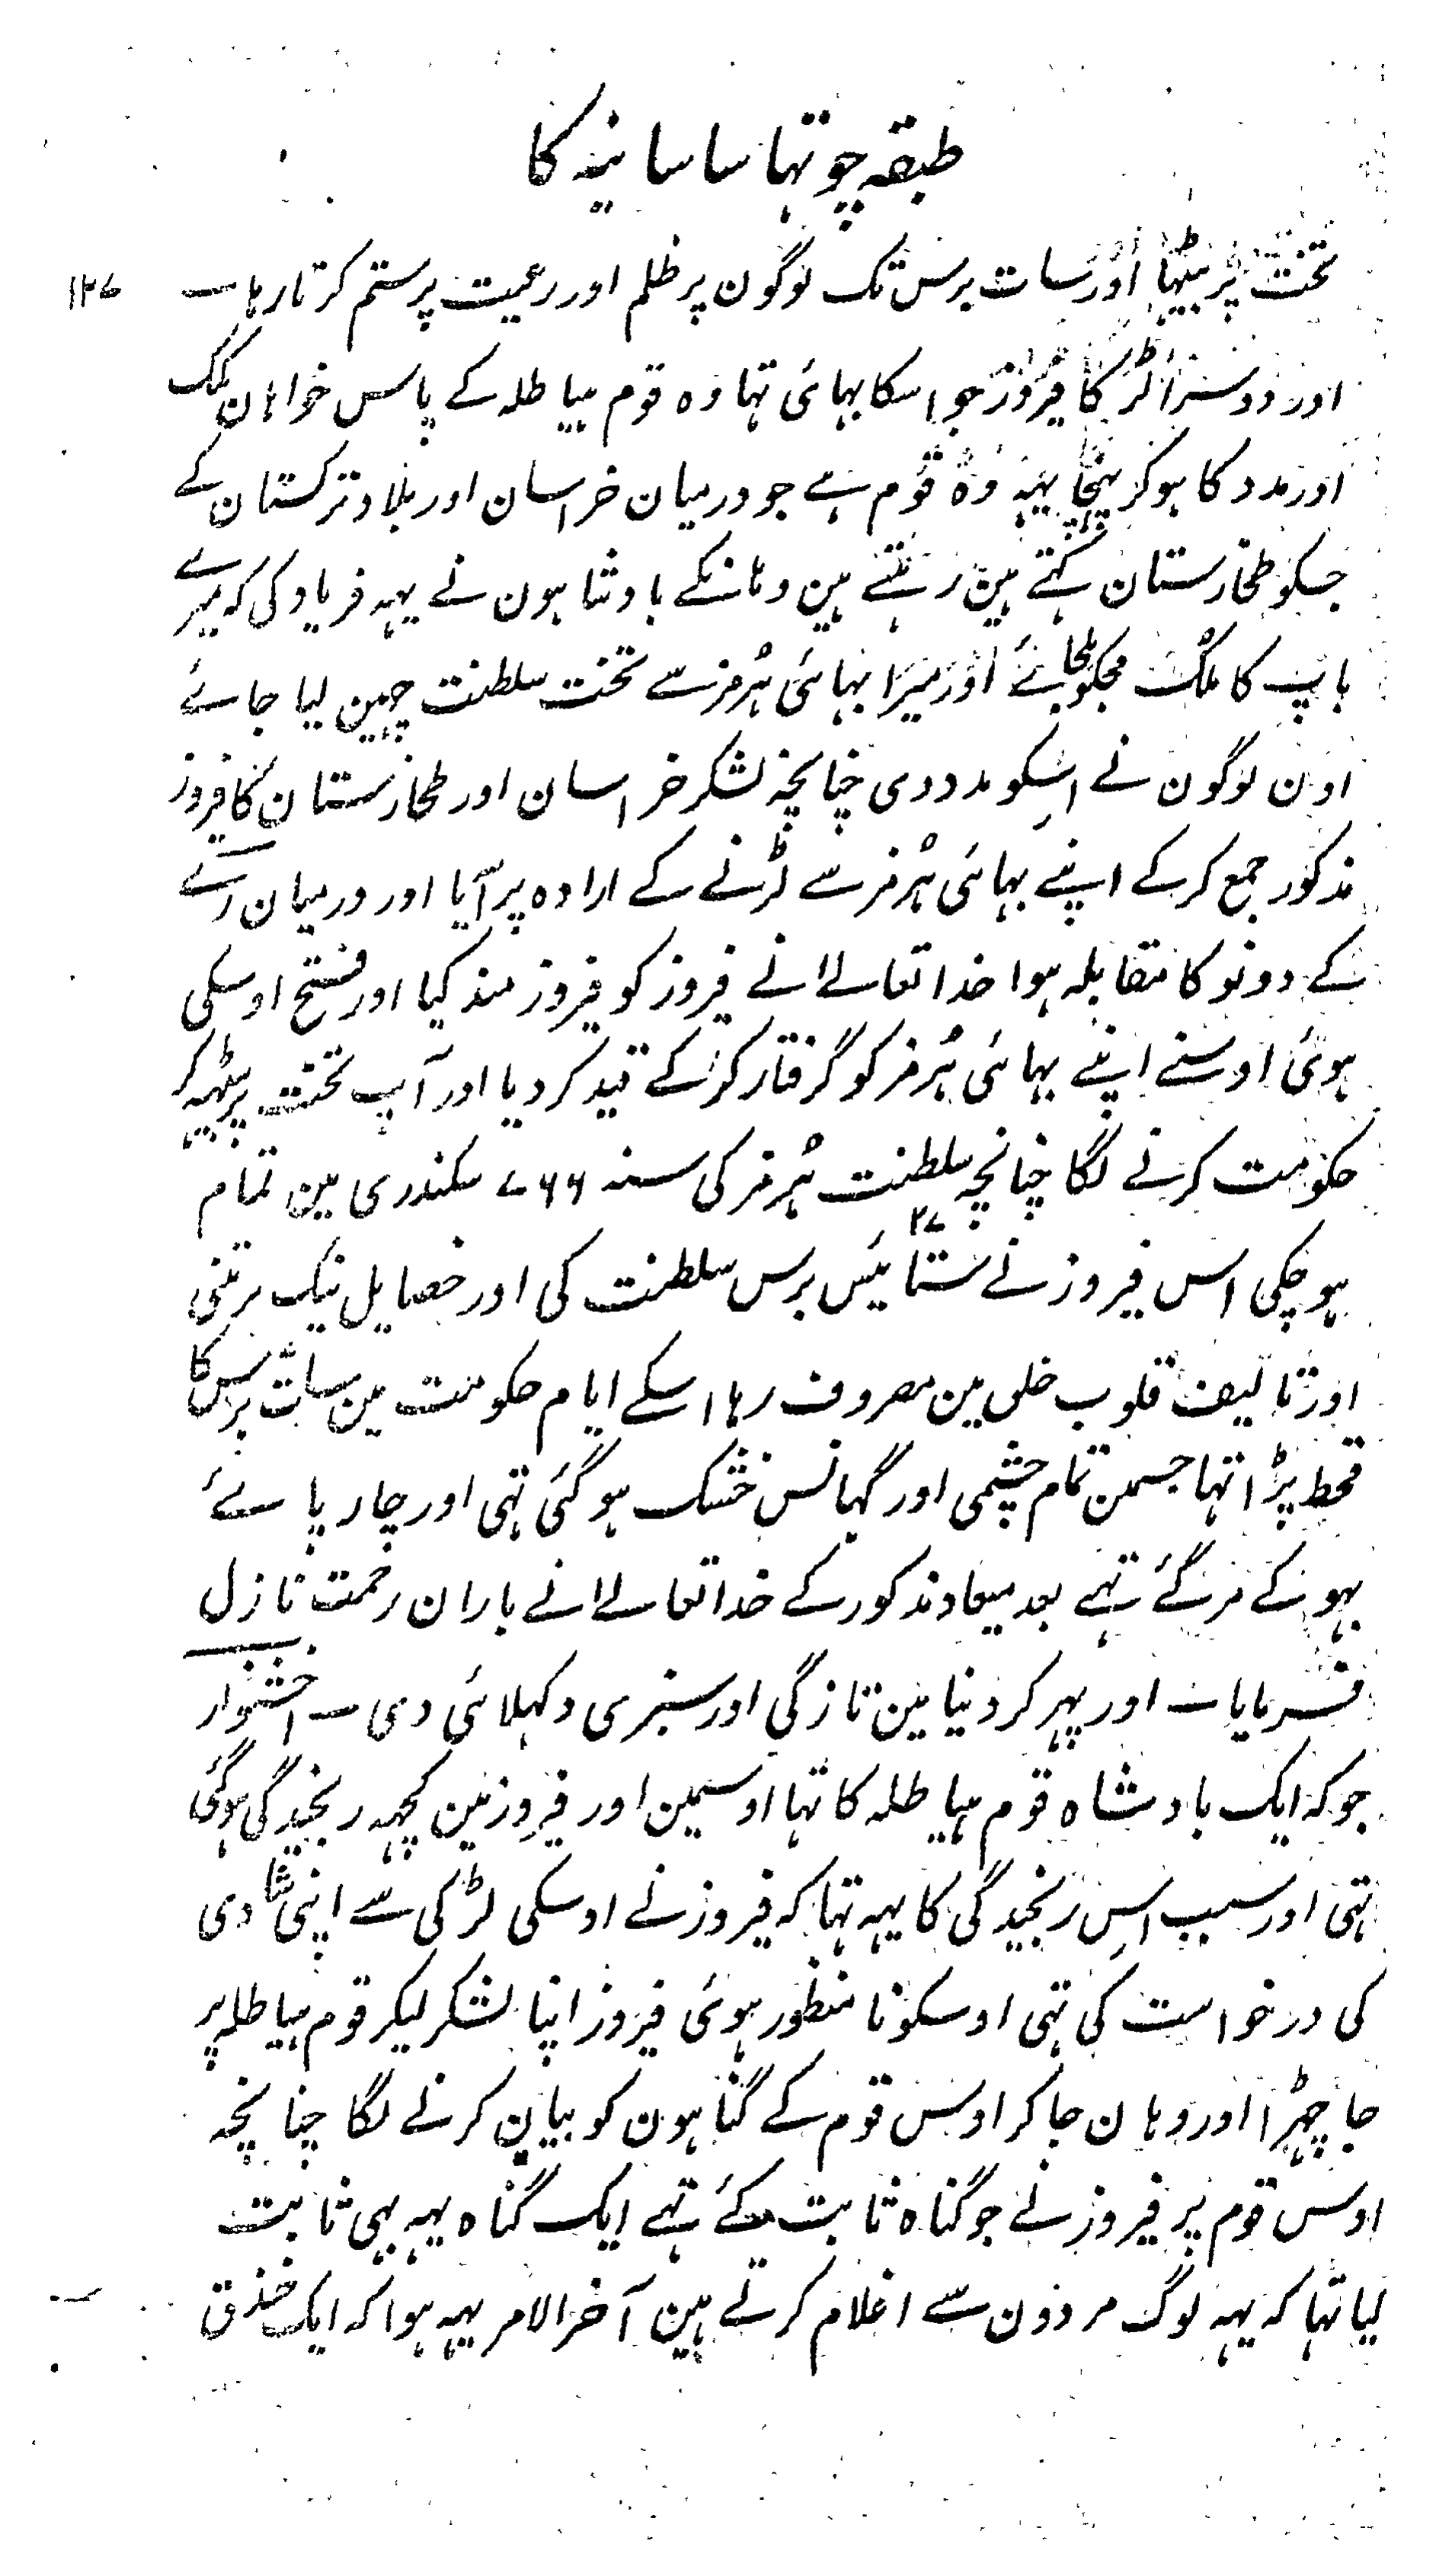 طبقہ چوتہا ساسانیہ کا
تخت پر بیٹہا اور سات برس تک لوگون پر ظلم اور رعیت پر ستم کرتا رہا ۔ ۱۲۷
اور دوسرا لڑکا فیروز جو اسکا بہائی تہا وہ قوم ہیاطلہ کے پاس خواہان کمک
اور مدد کا ہو کر پہنچا یہہ وہ قوم ہے جو درمیان خراسان اور بلاد ترکستان کے
جسکو طخارستان کہتے ہین رہتے ہین وہانکے بادشاہون نے یہہ فریاد کی کہ میرے
باپ کا ملک مجکو ملجائے اور میرا بہائی ہرمز سے تخت سلطنت چہین لیا جائے
اون لوگون نے اسکو مدد دی چنانچہ لشکر خراسان اور طخارستان کا فیروز
مذکور جمع کر کے اپنے بہائی ہرمز سے لڑنے کے ارادہ پر آیا اور درمیان رے
کے دونو کا مقابلہ ہوا خدا تعالے انے فیروز کو فیروز مند کیا اور فتح اوسکی
ہوئی اوسنے اپنے بہائی ہرمز کو گرفتار کر کے قید کر دیا اور آپ تخت پر بیٹہہ کر
حکومت کرنے لگا چنانچہ سلطنت ہرمز کی سنہ ۷۶۶ سکندری مین تمام
ہو چکی اس فیروز نے ستائیس ۲۷ برس سلطنت کی اور خصایل نیک برتنی
اور تالیف قلوب خلق مین مصروف رہا اسکے ایام حکومت مین سات برس کا
قحط پڑا تہا جسمن تمام چشمی اور گہانس خشک ہو گئی تہی اور چار پائے
بہو کے مر گئے تہے بعد میعاد مذکور کے خدا تعالے انے باران رحمت نازل
فرمایا ۔ اور پہر کر دنیا مین تازگی اور سبزی دکہلائی دی ۔ اخشنوار
جو کہ ایک بادشاہ قوم ہیاطلہ کا تہا اوسمین اور فیروز مین کچہہ رنجیدگی ہو گئی
تہی اور سبب اس رنجیدگی کا یہہ تہا کہ فیروز نے اوسکی لڑکی سے اپنی شادی
کی درخواست کی تہی اوسکو نا منظور ہوئی فیروز اپنا لشکر لیکر قوم ہیاطلہ پر
جا چہڑا اور وہان جا کر اوس قوم کے گناہون کو بیان کرنے لگا چنانچہ
اوس قوم پر فیروز نے جو گناہ ثابت کئے تہے ایک گناہ یہہ بہی ثابت
کیا تہا کہ یہہ لوگ مردون سے اغلام کرتے ہین آخر الامر یہہ ہوا کہ ایک خندق